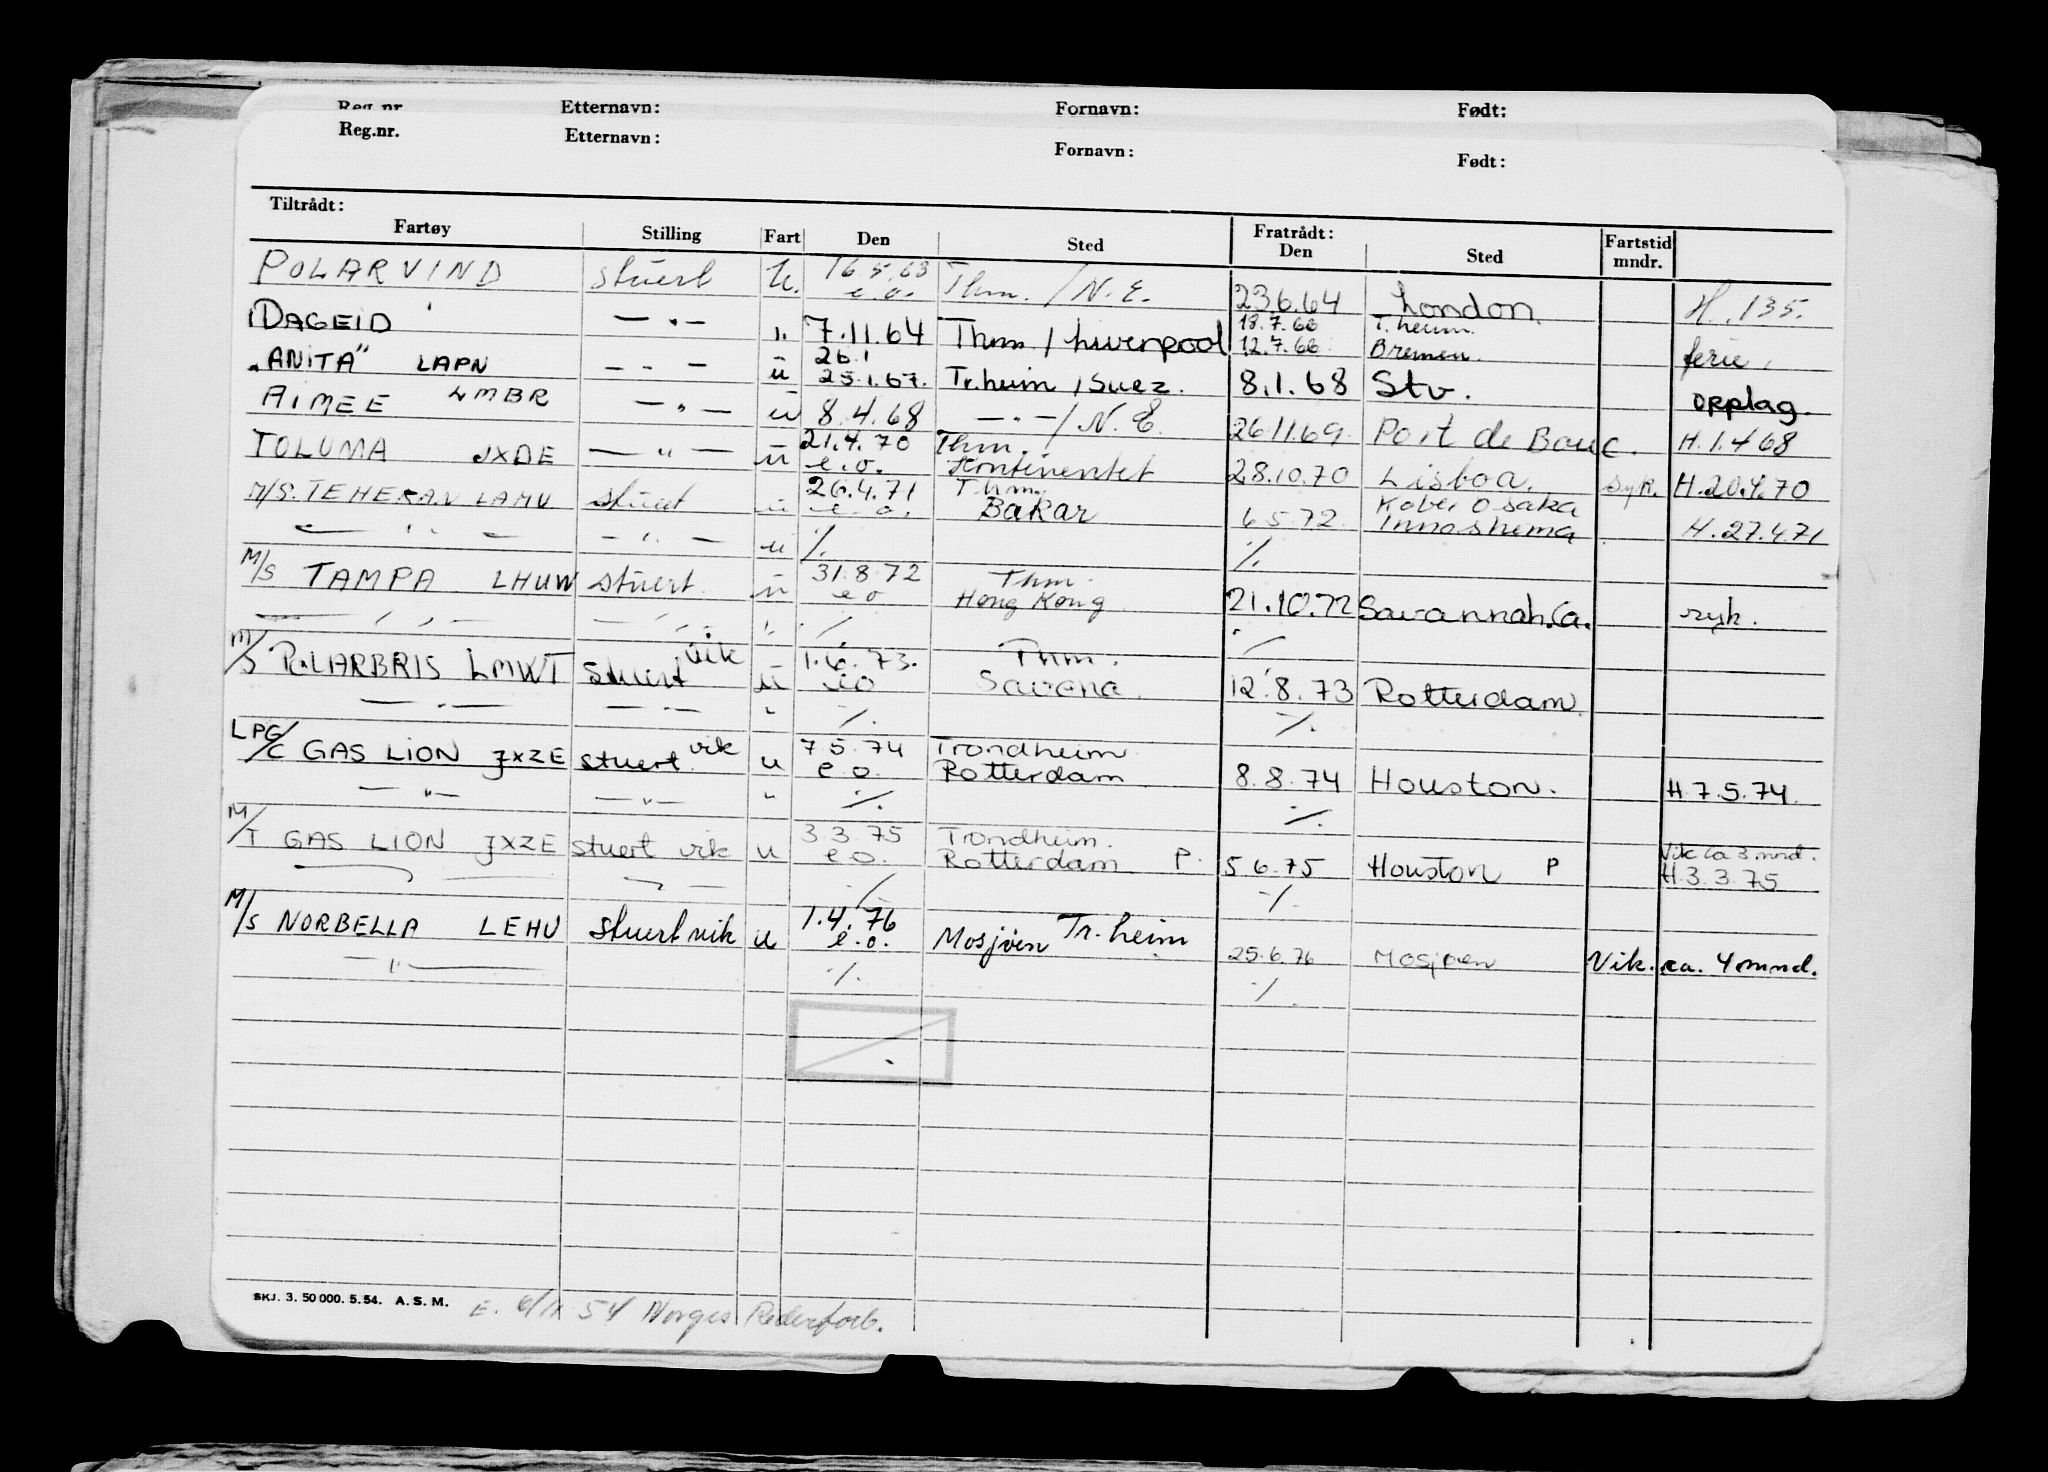 Reg. nr. Etternavn: Fornavn: Født:
Reg.nr. Etternavn: Fornavn: Født:
Tiltrådt: Fratrådt:
Fartøy Stilling Fart Den Sted Den Sted Fartstid mndr.
POLARVIND stuert U. 16.5.63 e.o. Thm. / N.E. 23.6.64 London H. 135.
DAGEID — " — " 7.11.64 Thm / Liverpool 18.7.66 T.heim. 12.7.66 Bremen. ferie.
"ANITA" LAPN — " — u 26.1 25.1.67. Tr.heim / Suez. 8.1.68 Stv. opplag.
AIMEE LMBR — " — u 8.4.68 — " — / N.E. 26.11.69. Port de Bouc. H.1.4 68
TOLUMA JXDE — " — u 21.4.70 e.o. Thm. Kontinentet 28.10.70 Lisboa. syk. H.20.4.70
M/S. TEHERAN LAMU stuert u 26.4.71 e.o. Thm. Bakar 6 5 72. Kobe, Osaka Innoshima H.27.4.71
— " — — " — u ./. ./.
M/S TAMPA LHUW stuert u 31.8.72 e o Thm. Hong Kong 21.10.72 Savannah.Ga. syk.
— " — — " — " ./. ./.
M/S POLARBRIS LMWT stuert vik u 1.6.73. eo Thm. Savona 12.8.73 Rotterdam.
— " — — " — " ./. ./.
LPG/C GAS LION JXZE stuert vik u 7 5.74 e o. Trondheim Rotterdam 8.8.74 Houston. H.7.5.74.
— " — — " — " ./. ./.
M/T GAS LION JXZE stuert vik u 3.3.75 e o. Trondheim. Rotterdam P. 5 6.75 Houston P Vik ca 3 mnd. H.3.3.75
— " — — " — ./. ./.
M/S NORBELLA LEHU stuert vik u 1.4.76 e.o. Mosjøen Tr.heim 25.6.76 Mosjøen Vik. ca. 4 mnd.
— " — ./. ./.
SKJ. 3. 50 000. 5. 54. A. S. M. E. 54 Norges Rederforb.